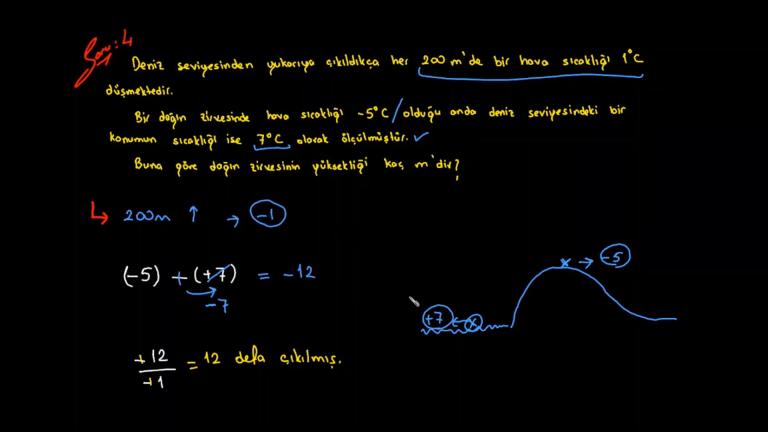 Soru: 4
Deniz seviyesinden yukarıya çıkıldıkça her 200 m'de bir hava sıcaklığı 1°C
düşmektedir.
Bir dağın zirvesinde hava sıcaklığı -5°C / olduğu anda deniz seviyesindeki bir
konumun sıcaklığı ise 7°C olarak ölçülmüştür. ✓
Buna göre dağın zirvesinin yüksekliği kaç m'dir?
↳ 200m ↑ → -1
(-5) + (+7) = -12
-7
x → -5
+7 ← x
+12 / +1 = 12 defa çıkılmış.